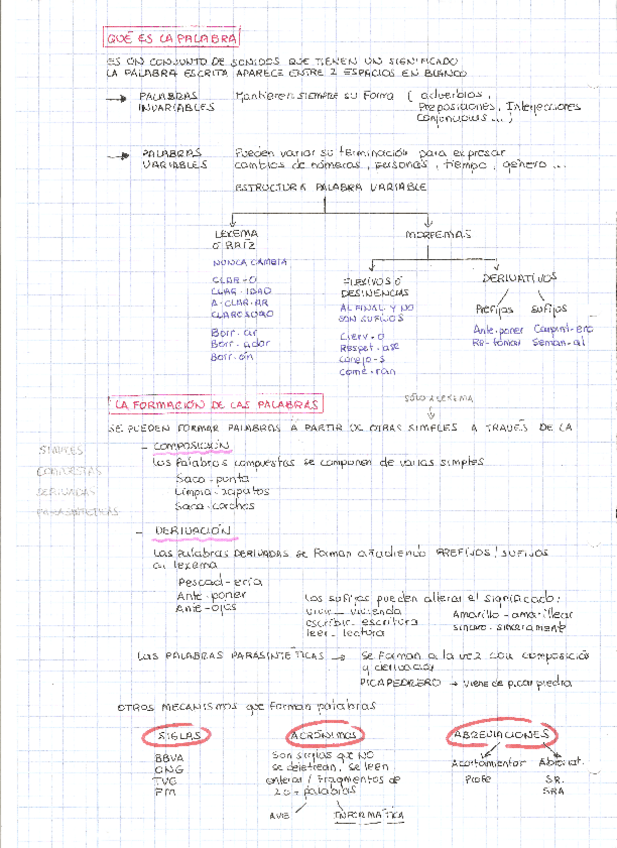 QUÉ ES LA PALABRA
ES UN CONJUNTO DE SONIDOS QUE TIENEN UN SIGNIFICADO
LA PALABRA ESCRITA APARECE ENTRE 2 ESPACIOS EN BLANCO
→ PALABRAS INVARIABLES
Mantienen SIEMPRE su Forma ( adverbios,
Preposiciones, Interjecciones
Conjunciones ... )
→ PALABRAS VARIABLES
Pueden variar su terminación para expresar
cambios de números, personas, tiempo, género ...
ESTRUCTURA PALABRA VARIABLE
LEXEMA
O RAÍZ
NUNCA CAMBIA
CLAR-O
CLAR-IDAD
A-CLAR-AR
CLAROSCURO
Borr-ar
Borr-ador
Borr-ón
MORFEMAS
FLEXIVOS O
DESINENCIAS
AL FINAL Y NO
SON SUFIJOS
Cierv-o
Respet-ase
Conejo-s
Come-rán
DERIVATIVOS
Prefijos Sufijos
Ante-poner Carpint-ero
Re-tomar Seman-al
LA FORMACIÓN DE LAS PALABRAS
SÓLO 1 LEXEMA
SE PUEDEN FORMAR PALABRAS A PARTIR DE OTRAS SIMPLES A TRAVÉS DE LA
SIMPLES
COMPUESTAS
DERIVADAS
PARASINTÉTICAS
- COMPOSICIÓN
Las Palabras compuestas se componen de varias simples
Saca-punta
Limpia-zapatos
Saca-corchos
- DERIVACIÓN
Las Palabras DERIVADAS se Forman añadiendo PREFIJOS / SUFIJOS
al lexema
Pescad-ería
Ante-poner
Ante-ojos
Los sufijos pueden alterar el significado:
vivir - vivienda
escribir - escritura
leer - lectura
Amarillo - amarillear
sincero - sinceramente
LAS PALABRAS PARASINTÉTICAS → se Forman a la vez con composición
y derivación
PICAPEDRERO → viene de picar piedra
OTROS MECANISMOS que Forman palabras
SIGLAS
BBVA
ONG
TVE
PM
ACRÓNIMOS
Son siglas que NO
se deletrean, se leen
enteras / Fragmentos de
2 o + palabras
AVE INFORMÁTICA
ABREVIACIONES
Acortamientos
Profe
Abreviat.
SR.
SRA